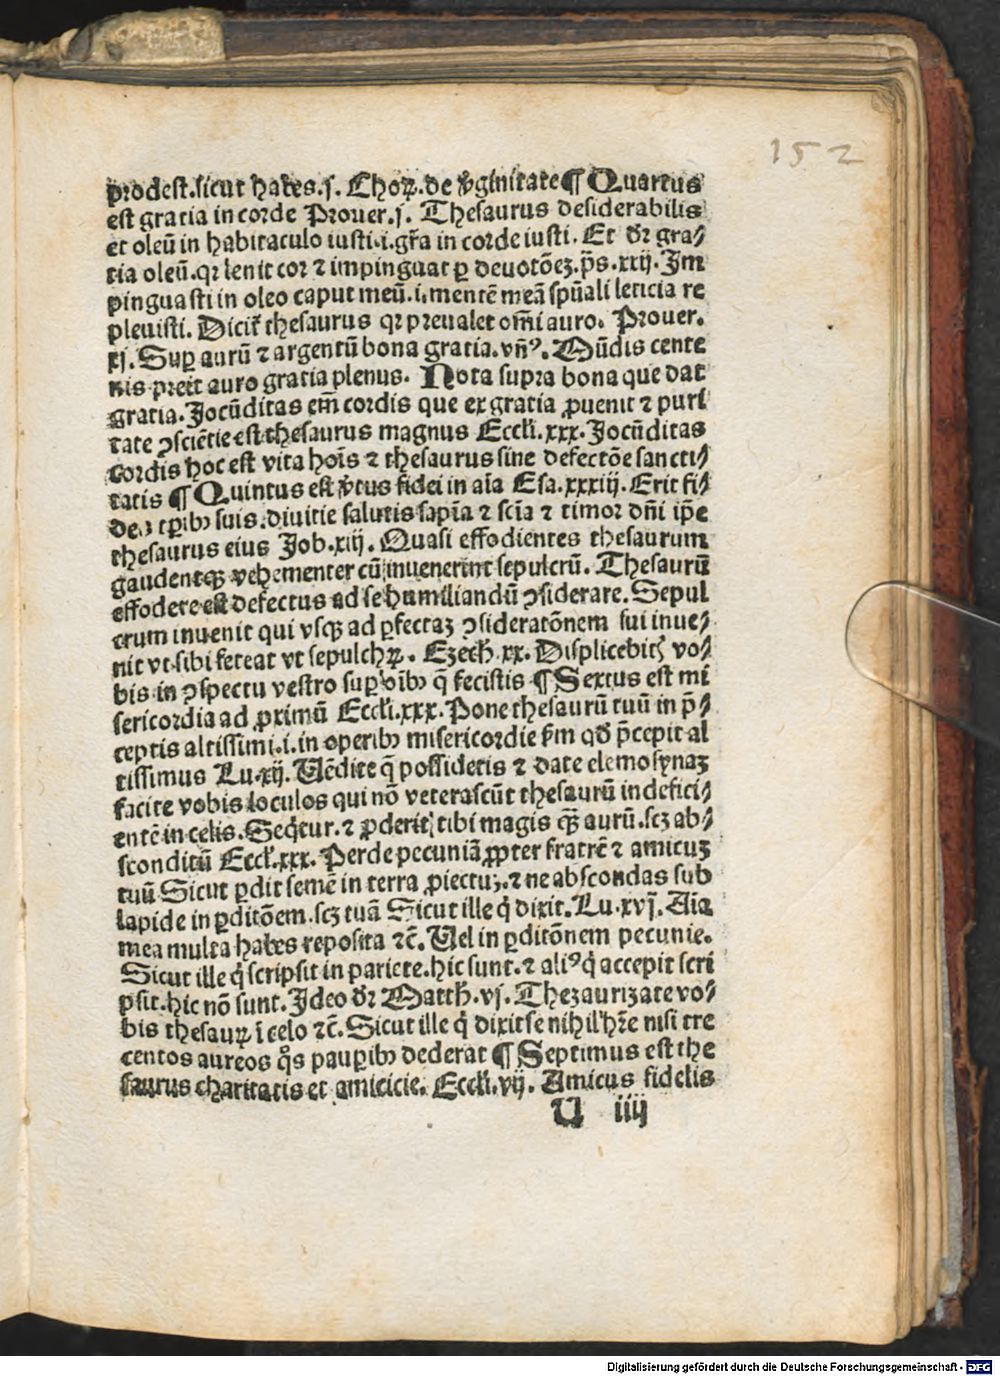 152
prodest. sicut habes. j. Choꝝ. de v̓ginitate ¶ Quartus
est gratia in corde Prouer. j. Thesaurus desiderabilis
et oleū in habitaculo iusti .i. gr̄a in corde iusti. Et dr̄ gra⸗
tia oleū. qr lenit cor ⁊ impinguat ꝑ deuotōeꝫ. ps̄. xxij. Jm
pinguasti in oleo caput meū. i. mentē meā spūali leticia re
pleuisti. Dicit̄ thesaurus qr preualet om̄i auro. Prouer.
xj. Suꝑ aurū ⁊ argentū bona gratia. vn̄ꝰ. Mūdis cente
nis preit auro gratia plenus. Nota supra bona que dat
gratia. Jocūditas em̄ cordis que ex gratia ꝓuenit ⁊ puri
tate ꝯsciētie est thesaurus magnus Eccli. xxx. Jocūditas
cordis hoc est vita hoīs ⁊ thesaurus sine defectōe sancti⸗
tatis ¶ Quintus est v̓tus fidei in aīa Esa. xxxiij. Erit fi⸗
des tꝑibꝰ suis. diuitie salutis sapīa ⁊ scīa ⁊ timor dn̄i ip̄e
thesaurus eius Job. xiij. Quasi effodientes thesaurum
gaudentqꝫ vehementer cū inuenerint sepulcrū. Thesaurū
effodere est defectus ad se humiliandū ꝯsiderare. Sepul
crum inuenit qui vsqꝫ ad ꝑfectaꝫ ꝯsideratōnem sui inue⸗
nit vt sibi feteat vt sepulchꝝ. Ezech. xx. Displicebit̄ vo⸗
bis in ꝯspectu vestro suꝑ oībꝰ q̄ fecistis ¶ Sextus est mi
sericordia ad ꝓximū Eccli. xxx. Pone thesaurū tuū in p̄⸗
ceptis altissimi. i. in operibꝰ misericordie fm qd̄ p̄cepit al
tissimus Lu. xij. Uēdite q̄ possidetis ⁊ date elemosynaꝫ
facite vobis loculos qui nō veterascūt thesaurū indefici⸗
entē in celis. Seq̄tur. ⁊ ꝓderit tibi magis qꝫ̄ aurū. scꝫ ab⸗
sconditū Eccl. xxx. Perde pecuniā ꝓpter fratrē ⁊ amicuꝫ
tuū Sicut ꝑdit semē in terra ꝓiectuꝫ. ⁊ ne abscondas sub
lapide in ꝑditōem. scꝫ tuā Sicut ille q̇ dixit. Lu. xvj. Aīa
mea multa habes reposita ⁊c̄. Uel in ꝑditōnem pecunie.
Sicut ille q̇ scripsit in pariete. hic sunt. ⁊ aliꝰ q̇ accepit scri
psit. hic nō sunt. Jdeo dr̄ Matth. vj. Thezaurizate vo⸗
bis thesauꝝ ī celo ⁊c̄. Sicut ille q̇ dixit se nihil hr̄e nisi tre
centos aureos qͦs pauꝑibꝰ dederat ¶ Septimus est the
saurus charitatis et amicicie. Eccli. vij. Amicus fidelis
U iiij
Digitalisierung gefördert durch die Deutsche Forschungsgemeinschaft - DFG